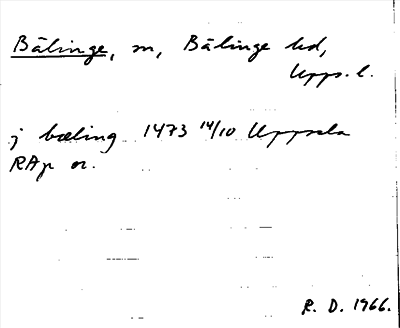 Bälinge, sn, Bälinge hd,
Upps. l.
j bæling 1473 14/10 Uppsala
RAp or.
R. D. 1966.